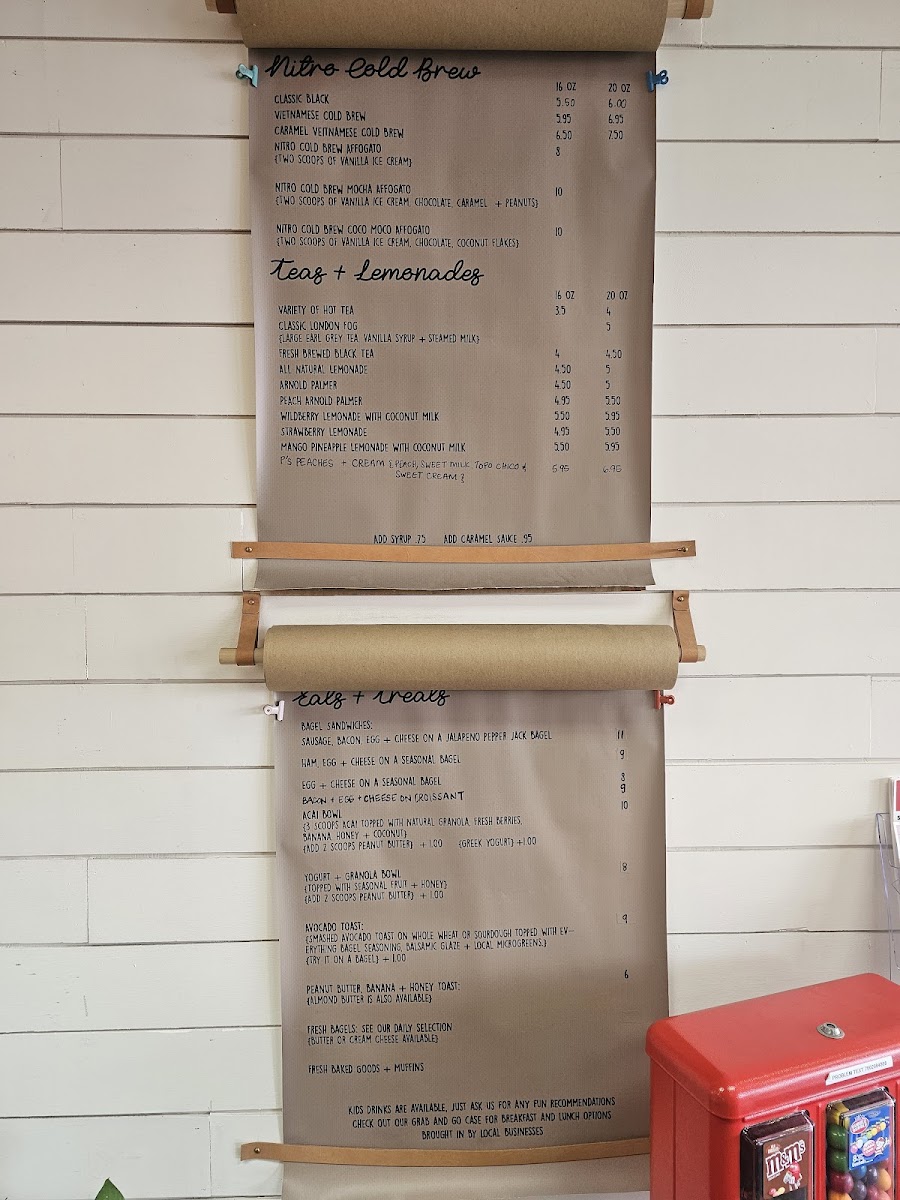 Nitro Cold Brew
16 OZ 20 OZ
CLASSIC BLACK 5.50 6.00
VIETNAMESE COLD BREW 5.95 6.95
CARAMEL VEITNAMESE COLD BREW 6.50 7.50
NITRO COLD BREW AFFOGATO 8
{TWO SCOOPS OF VANILLA ICE CREAM}
NITRO COLD BREW MOCHA AFFOGATO 10
{TWO SCOOPS OF VANILLA ICE CREAM, CHOCOLATE, CARAMEL + PEANUTS}
NITRO COLD BREW COCO MOCO AFFOGATO 10
{TWO SCOOPS OF VANILLA ICE CREAM, CHOCOLATE, COCONUT FLAKES}
Teas + Lemonades
16 OZ 20 OZ
VARIETY OF HOT TEA 3.5 4
CLASSIC LONDON FOG 5
{LARGE EARL GREY TEA, VANILLA SYRUP + STEAMED MILK}
FRESH BREWED BLACK TEA 4 4.50
ALL NATURAL LEMONADE 4.50 5
ARNOLD PALMER 4.50 5
PEACH ARNOLD PALMER 4.95 5.50
WILDBERRY LEMONADE WITH COCONUT MILK 5.50 5.95
STRAWBERRY LEMONADE 4.95 5.50
MANGO PINEAPPLE LEMONADE WITH COCONUT MILK 5.50 5.95
P'S PEACHES + CREAM { PEACH, SWEET MILK, TOPO CHICO & 5.95 6.95
SWEET CREAM }
ADD SYRUP .75 ADD CARAMEL SAUCE .95
Eats + Treats
BAGEL SANDWICHES:
SAUSAGE, BACON, EGG + CHEESE ON A JALAPENO PEPPER JACK BAGEL 11
HAM, EGG + CHEESE ON A SEASONAL BAGEL 9
EGG + CHEESE ON A SEASONAL BAGEL 8
BACON + EGG + CHEESE ON CROISSANT 9
ACAI BOWL 10
{3 SCOOPS ACAI TOPPED WITH NATURAL GRANOLA, FRESH BERRIES,
BANANA, HONEY + COCONUT}
{ADD 2 SCOOPS PEANUT BUTTER} +1.00 {GREEK YOGURT} +1.00
YOGURT + GRANOLA BOWL 8
{TOPPED WITH SEASONAL FRUIT + HONEY}
{ADD 2 SCOOPS PEANUT BUTTER} +1.00
AVOCADO TOAST: 9
{SMASHED AVOCADO TOAST ON WHOLE WHEAT OR SOURDOUGH TOPPED WITH EV-
ERYTHING BAGEL SEASONING, BALSAMIC GLAZE + LOCAL MICROGREENS.}
{TRY IT ON A BAGEL} + 1.00
PEANUT BUTTER, BANANA + HONEY TOAST: 6
{ALMOND BUTTER IS ALSO AVAILABLE}
FRESH BAGELS: SEE OUR DAILY SELECTION
{BUTTER OR CREAM CHEESE AVAILABLE}
FRESH BAKED GOODS + MUFFINS
KIDS DRINKS ARE AVAILABLE, JUST ASK US FOR ANY FUN RECOMMENDATIONS
CHECK OUT OUR GRAB AND GO CASE FOR BREAKFAST AND LUNCH OPTIONS
BROUGHT IN BY LOCAL BUSINESSES
m&m's